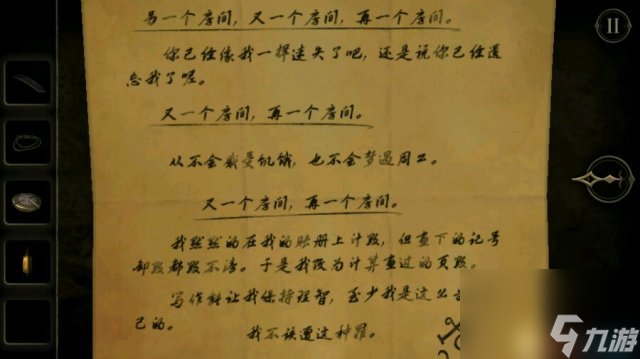 另一个房间，又一个房间，再一个房间。
你已经像我一样迷失了吧，还是说你已经遗
忘我了呢。
又一个房间，再一个房间。
从不会感受饥饿，也不会梦遇周公。
又一个房间，再一个房间。
我默默的在我的账册上计数，但画下的记号
都数都数不清。于是我改为计算画过的页数。
写作能让我保持理智，至少我是这么
己的。
我不该遭这种罪。
九游